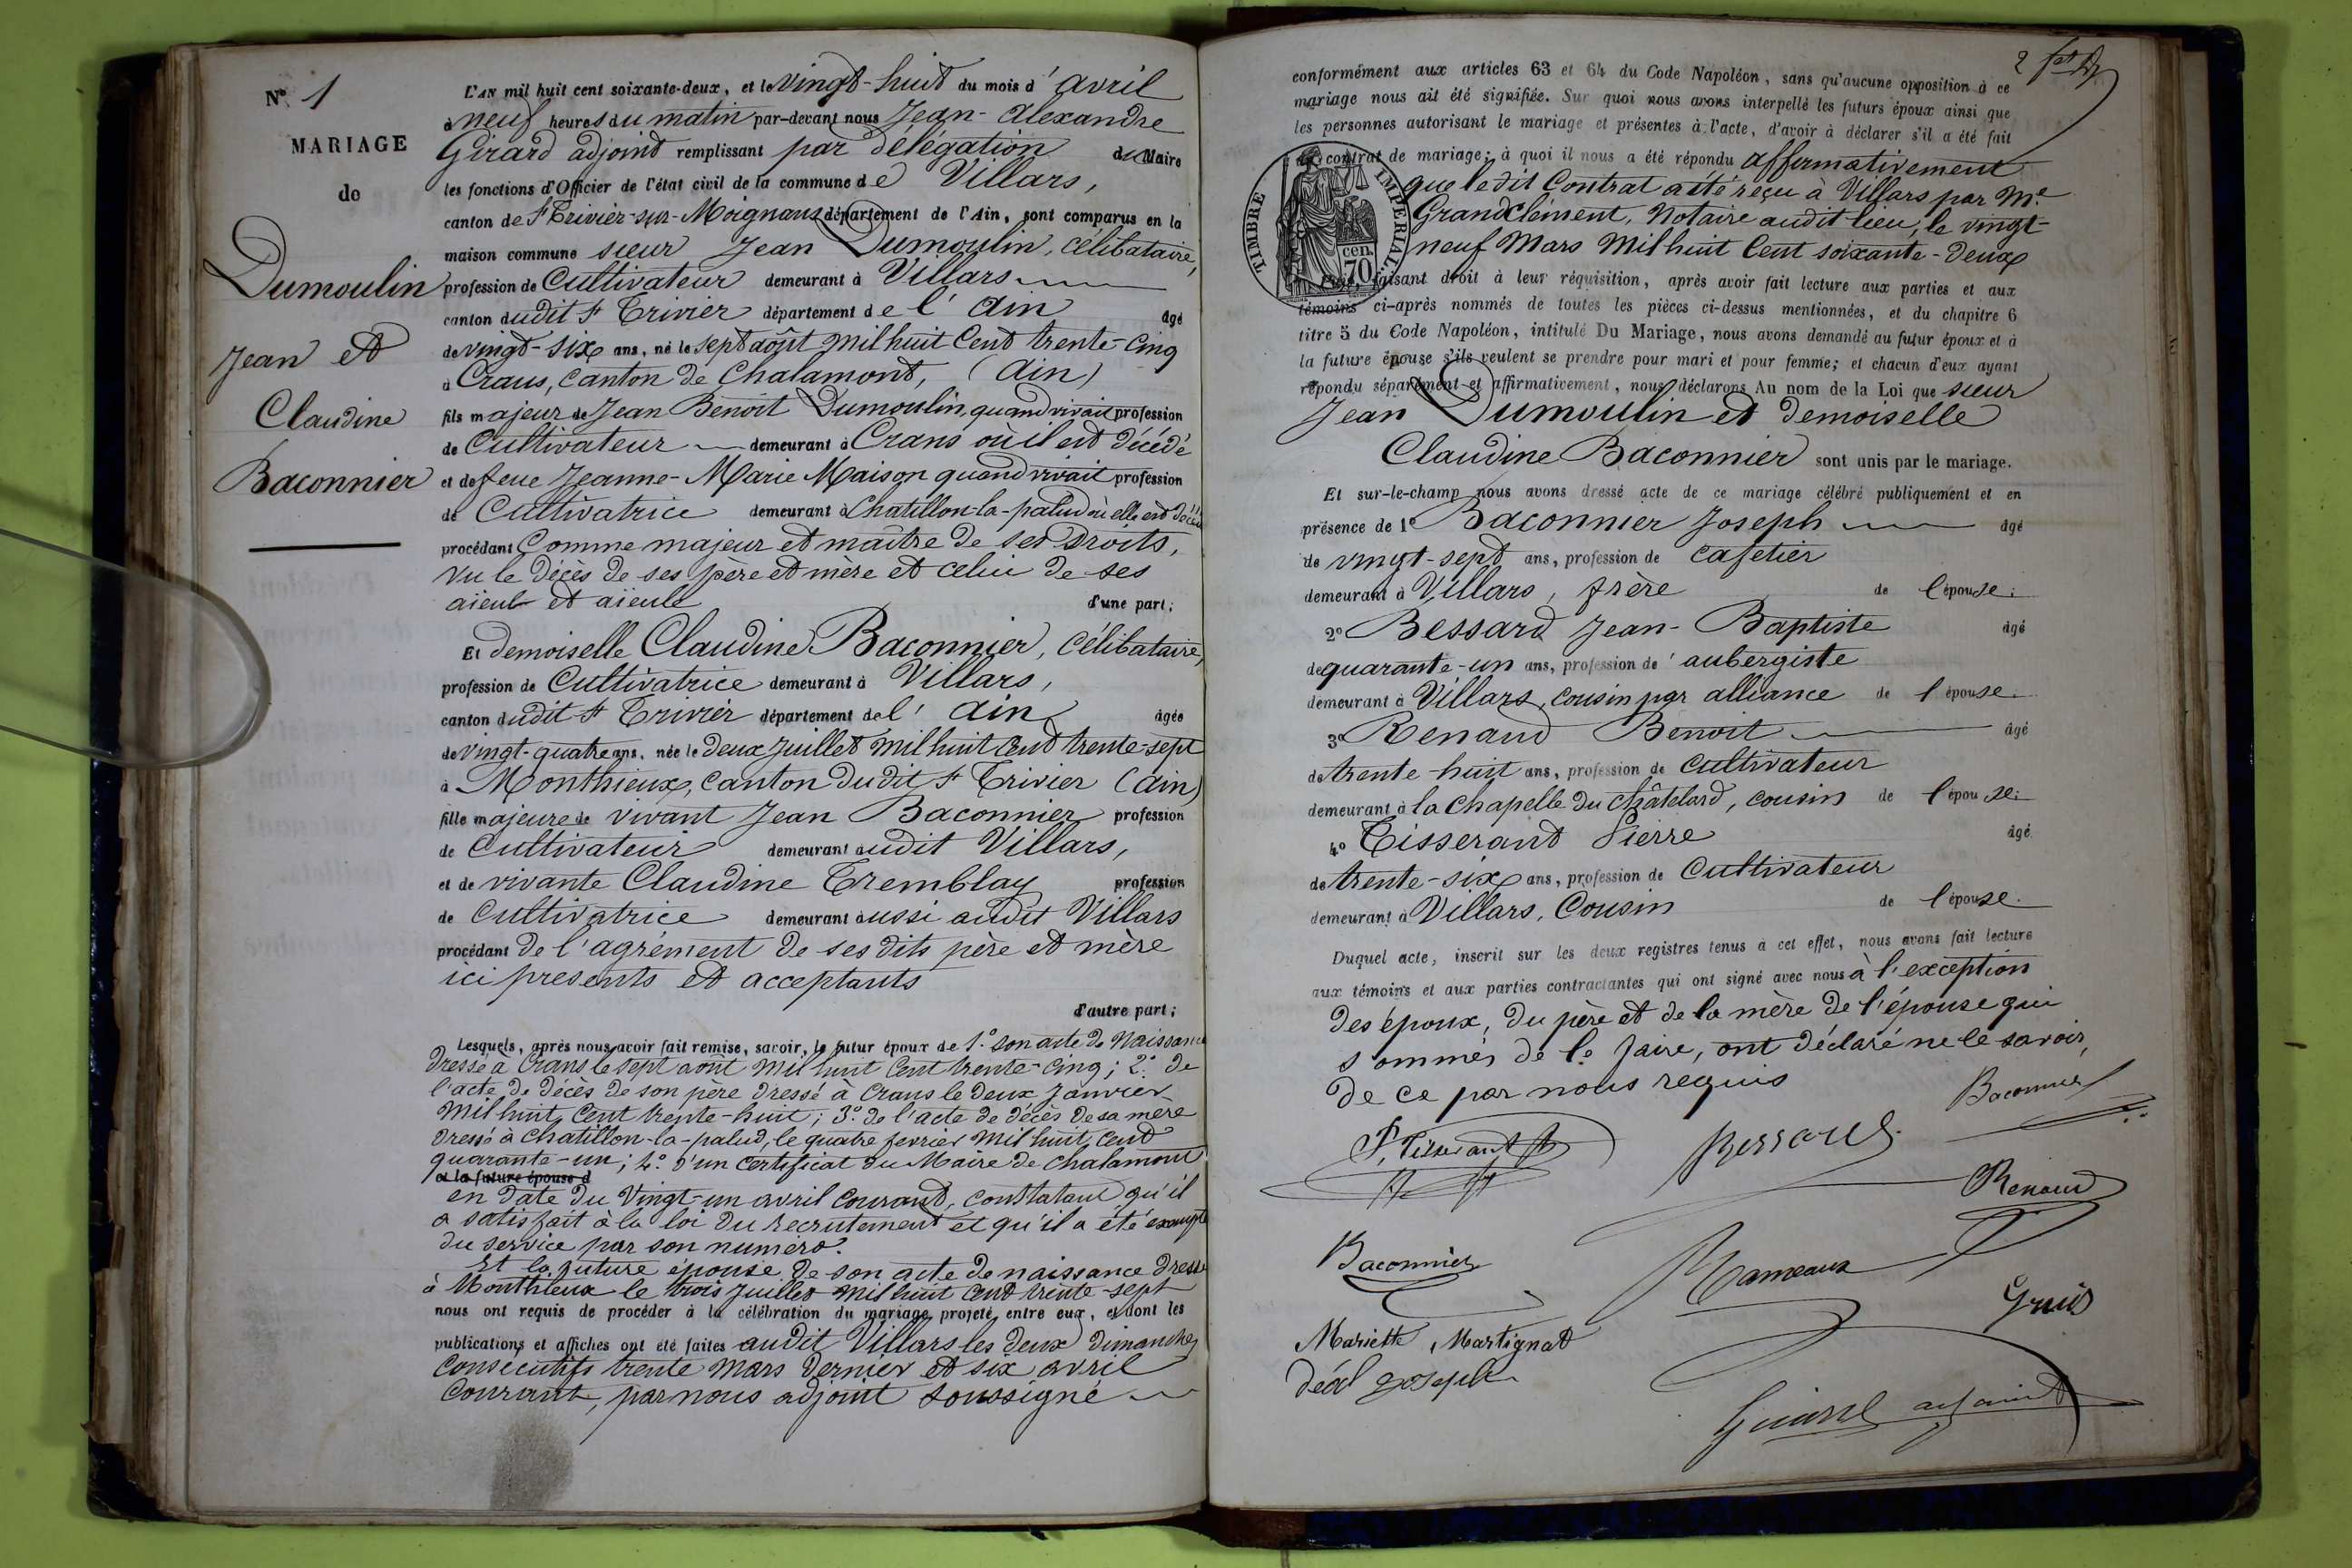 N° 1
MARIAGE
de
Dumoulin
Jean et
Claudine
Baconnier
L'AN mil huit cent soixante-deux, et le vingt-huit du mois d'avril
à neuf heures du matin par-devant nous Jean-Alexandre
Girard adjoint remplissant par délégation du Maire
les fonctions d'Officier de l'état civil de la commune de Villars,
canton de St Trivier-sur-Moignans département de l'Ain, sont comparus en la
maison commune sieur Jean Dumoulin, célibataire,
profession de Cultivateur demeurant à Villars
canton dudit St Trivier département de l'Ain âgé
de vingt-six ans, né le sept août mil huit cent trente-cinq
à Crans, canton de Chalamont, (Ain)
fils majeur de Jean Benoît Dumoulin, quand vivait profession
de Cultivateur demeurant à Crans où il est décédé
et de feue Jeanne-Marie Maison quand vivait profession
de Cultivatrice demeurant à Chatillon-la-palud où elle est décédée
procédant Comme majeur et maître de ses droits,
vu le décès de ses père et mère et celui de ses
aïeul et aïeule d'une part;
Et demoiselle Claudine Baconnier, célibataire,
profession de Cultivatrice demeurant à Villars,
canton dudit St Trivier département de l'Ain âgée
de vingt-quatre ans, née le deux Juillet mil huit cent trente-sept
à Monthieux, canton dudit St Trivier (Ain)
fille majeure de vivant Jean Baconnier profession
de Cultivateur demeurant audit Villars,
et de vivante Claudine Tremblay profession
de Cultivatrice demeurant aussi audit Villars
procédant de l'agrément de ses dits père et mère
ici presents et acceptants
d'autre part;
Lesquels, après nous avoir fait remise, savoir, le futur époux de 1° son acte de Naissance
dressé à Crans le sept août mil huit cent trente-cinq; 2° de
l'acte de décès de son père dressé à Crans le deux Janvier
mil huit cent trente-huit; 3° de l'acte de décès de sa mère
dressé à Chatillon-la-palud, le quatre fevrier mil huit cent
quarante-un; 4° d'un certificat du Maire de Chalamont
et la future épouse d
en date du vingt-un avril courant, constatant qu'il
a satisfait à la loi du recrutement et qu'il a été exempté
du service par son numéro.
Et la future épouse de son acte de naissance dressé
à Monthieux le trois juillet mil huit cent trente-sept
nous ont requis de procéder à la célébration du mariage projeté entre eux, et dont les
publications et affiches ont été faites audit Villars les deux dimanches
consécutifs trente mars dernier et six avril
courant, par nous adjoint soussigné
2
conformément aux articles 63 et 64 du Code Napoléon, sans qu'aucune opposition à ce
mariage nous ait été signifiée. Sur quoi nous avons interpellé les futurs époux ainsi que
les personnes autorisant le mariage et présentes à l'acte, d'avoir à déclarer s'il a été fait
un contrat de mariage; à quoi il nous a été répondu affirmativement
que ledit Contrat a été reçu à Villars par Me
Grandclément, Notaire audit lieu, le vingt-
neuf Mars mil huit cent soixante-deux
TIMBRE IMPÉRIAL
70 cen.
faisant droit à leur réquisition, après avoir fait lecture aux parties et aux
témoins ci-après nommés de toutes les pièces ci-dessus mentionnées, et du chapitre 6
titre 5 du Code Napoléon, intitulé Du Mariage, nous avons demandé au futur époux et à
la future épouse s'ils veulent se prendre pour mari et pour femme; et chacun d'eux ayant
répondu séparément et affirmativement, nous déclarons Au nom de la Loi que sieur
Jean Dumoulin et demoiselle
Claudine Baconnier sont unis par le mariage.
Et sur-le-champ nous avons dressé acte de ce mariage célébré publiquement et en
présence de 1° Baconnier Joseph âgé
de vingt-sept ans, profession de cafetier
demeurant à Villars, frère de l'épouse.
2° Bessard Jean-Baptiste âgé
de quarante-un ans, profession d'aubergiste
demeurant à Villars, cousin par alliance de l'épouse.
3° Renaud Benoit âgé
de trente-huit ans, profession de cultivateur
demeurant à la chapelle du Châtelard, cousin de l'épouse.
4° Tisserant Pierre âgé
de trente-six ans, profession de Cultivateur
demeurant à Villars, Cousin de l'épouse.
Duquel acte, inscrit sur les deux registres tenus à cet effet, nous avons fait lecture
aux témoins et aux parties contractantes qui ont signé avec nous à l'exception
des époux, du père et de la mère de l'épouse qui
sommés de le faire, ont déclaré ne le savoir,
de ce par nous requis
Baconnier
P. Tisserant
Bessard
Renaud
Baconnier
Rameaux
Mariette Martignat
déal joseph
Girard adjoint